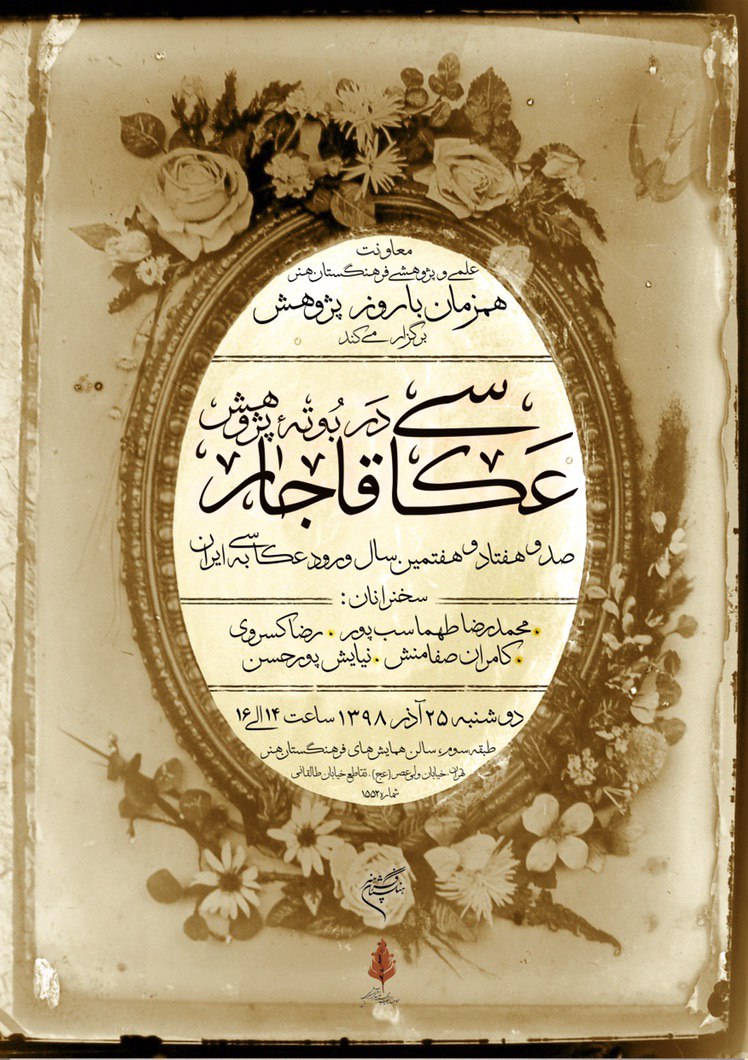 معاونت
علمی و پژوهشی فرهنگستان هنر
همزمان با روز پژوهش
برگزار می‌کند
عکاسی قاجار در بوتهٔ پژوهش
صد و هفتاد و هفتمین سال ورود عکاسی به ایران
سخنرانان:
• محمدرضا طهماسب‌پور • رضا کسروی
• کامران صفامنش • نیایش پورحسن
دوشنبه ۲۵ آذر ۱۳۹۸ ساعت ۱۴ الی ۱۶
طبقه سوم، سالن همایش‌های فرهنگستان هنر
تهران، خیابان ولی‌عصر (عج)، تقاطع خیابان طالقانی
شماره ۱۵۵۲
فرهنگستان هنر